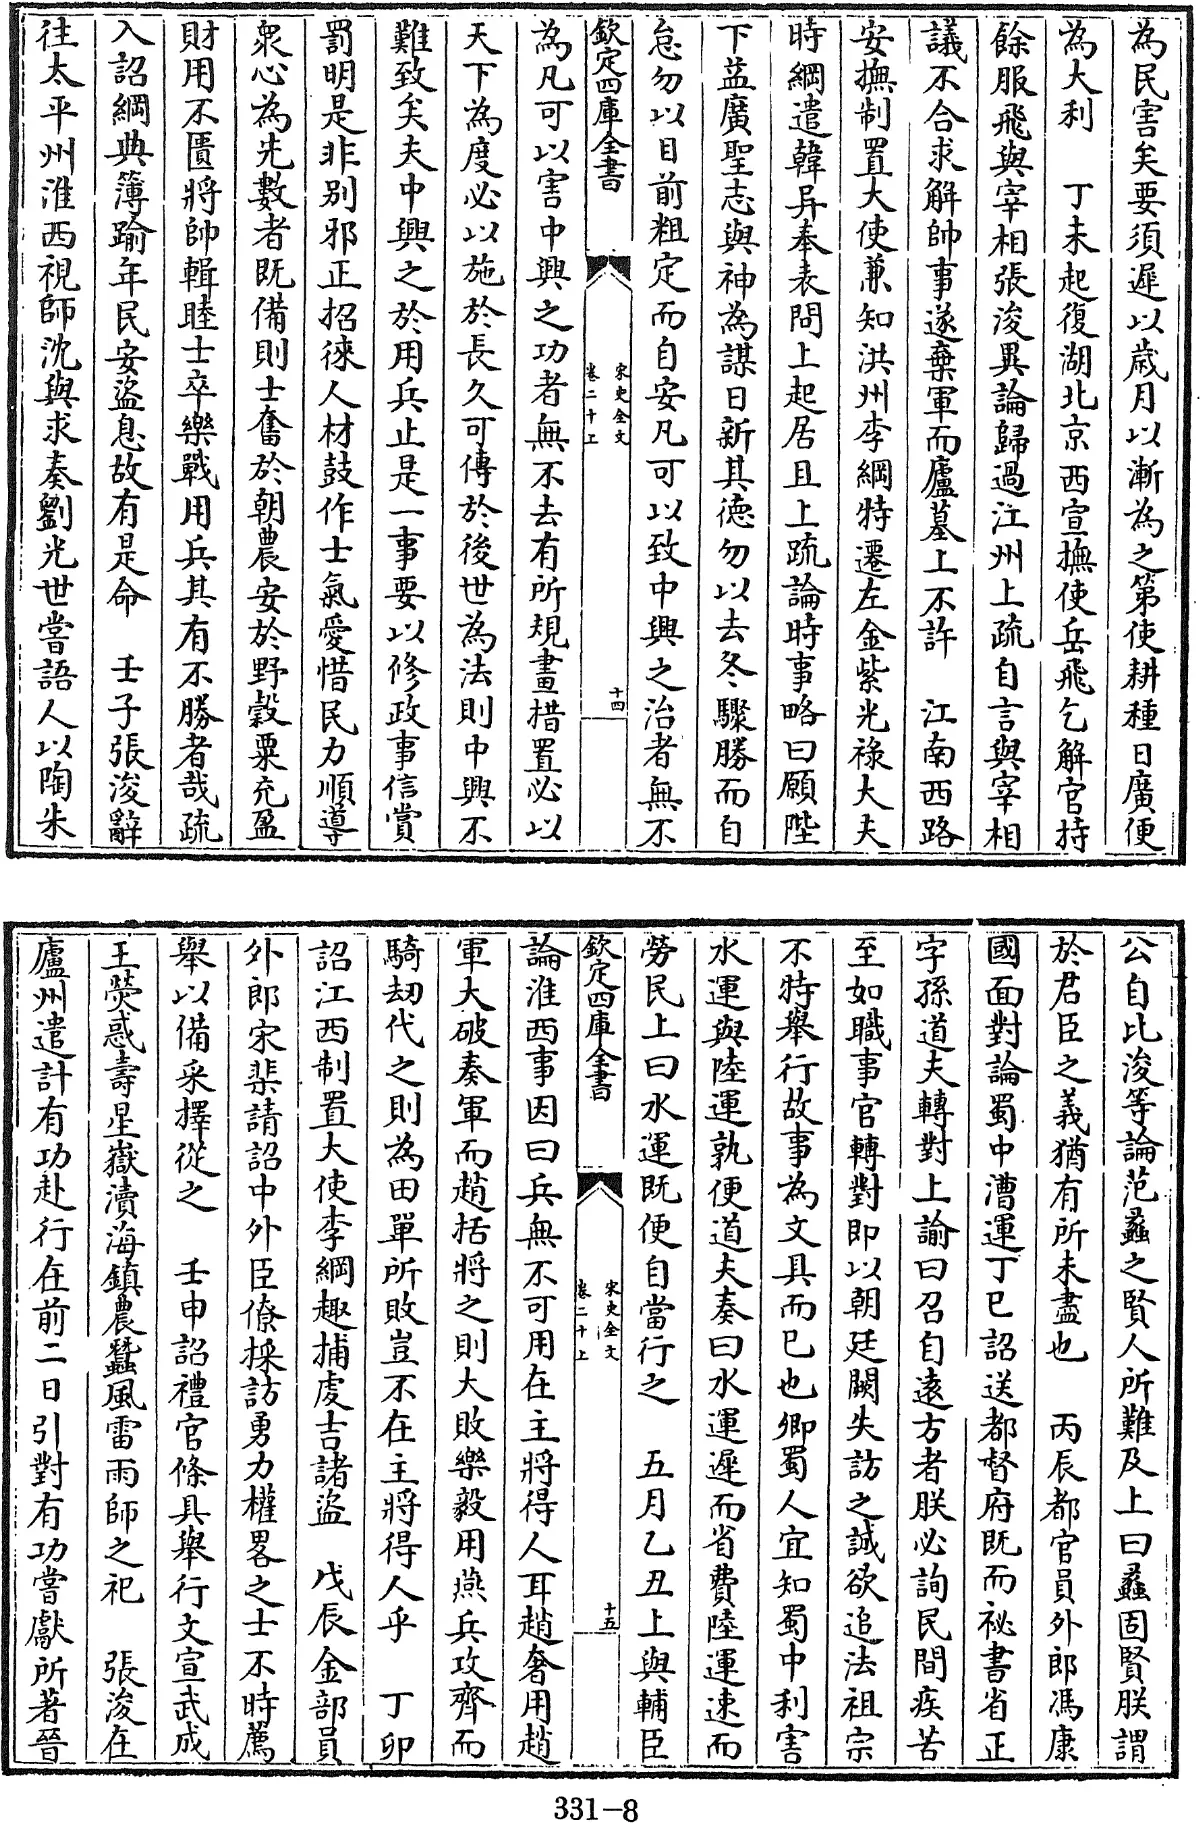 為民害矣要須遲以歳月以漸為之第使耕種日廣便
為大利　丁未起復湖北京西宣撫使岳飛乞解官持
餘服飛與宰相張浚異論歸過江州上疏自言與宰相
議不合求解帥事遂棄軍而廬墓上不許　江南西路
安撫制置大使兼知洪州李綱特遷左金紫光祿大夫
時綱遣韓昇奉表問上起居且上疏論時事略曰願陛
下益廣聖志與神為謀日新其德勿以去冬驟勝而自
怠勿以目前粗定而自安凡可以致中興之治者無不
欽定四庫全書
宋史全文
卷二十上
十四
為凡可以害中興之功者無不去有所規畫措置必以
天下為度必以施於長久可傳於後世為法則中興不
難致矣夫中興之於用兵止是一事要以修政事信賞
罰明是非別邪正招徠人材鼓作士氣愛惜民力順導
衆心為先數者既備則士奮於朝農安於野穀粟充盈
財用不匱將帥輯睦士卒樂戰用兵其有不勝者哉疏
入詔綱典簿踰年民安盜息故有是命　壬子張浚辭
往太平州淮西視師沈與求奏劉光世嘗語人以陶朱
公自比浚等論范蠡之賢人所難及上曰蠡固賢朕謂
於君臣之義猶有所未盡也　丙辰都官員外郎馮康
國面對論蜀中漕運丁巳詔送都督府既而祕書省正
字孫道夫轉對上諭曰召自遠方者朕必詢民間疾苦
至如職事官轉對即以朝廷闕失訪之誠欲追法祖宗
不特舉行故事為文具而已也卿蜀人宜知蜀中利害
水運與陸運孰便道夫奏曰水運遲而省費陸運速而
勞民上曰水運既便自當行之　五月乙丑上與輔臣
欽定四庫全書
宋史全文
卷二十上
十五
論淮西事因曰兵無不可用在主將得人耳趙奢用趙
軍大破秦軍而趙括將之則大敗樂毅用燕兵攻齊而
騎劫代之則為田單所敗豈不在主將得人乎　丁卯
詔江西制置大使李綱趣捕虔吉諸盜　戊辰金部員
外郎宋棐請詔中外臣僚採訪勇力權畧之士不時薦
舉以備采擇從之　壬申詔禮官條具舉行文宣武成
王熒惑壽星嶽瀆海鎮農蠶風雷雨師之祀　張浚在
廬州遣計有功赴行在前二日引對有功嘗獻所著晉
331-8